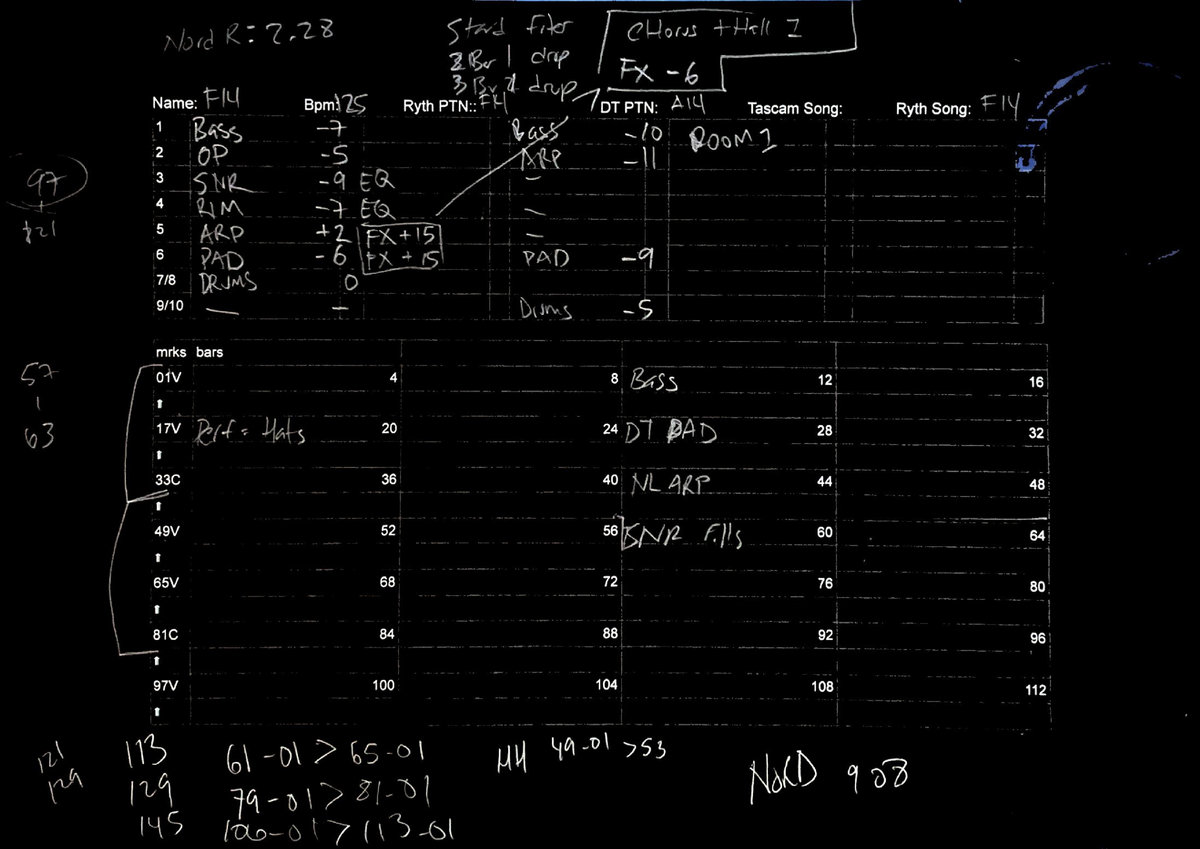 Nord R: 2.28
Stard Filter
2 Bar 1 drop
3 Br 2 drop
CHorus + Hall 1
FX -6
Name: F14 Bpm: 125 Ryth PTN:: F14 DT PTN: A14 Tascam Song: Ryth Song: F14
1 Bass -7 Bass -10 ROOM 1
2 OP -5 ARP -11
3 SNR -9 EQ -
4 RIM -7 EQ -
5 ARP +2 FX +15 -
6 PAD -6 FX +15 PAD -9
7/8 DRUMS 0
9/10 - - Drums -5
97
121
mrks bars
01V 4 8 Bass 12 16
17V Perf = Hats 20 24 DT PAD 28 32
33C 36 40 NL ARP 44 48
49V 52 56 SNR Fills 60 64
65V 68 72 76 80
81C 84 88 92 96
97V 100 104 108 112
57
63
121
129
113 61-01 > 65-01
129 79-01 > 81-01
145 106-01 > 113-01
HH 49-01 > 53
NORD 908